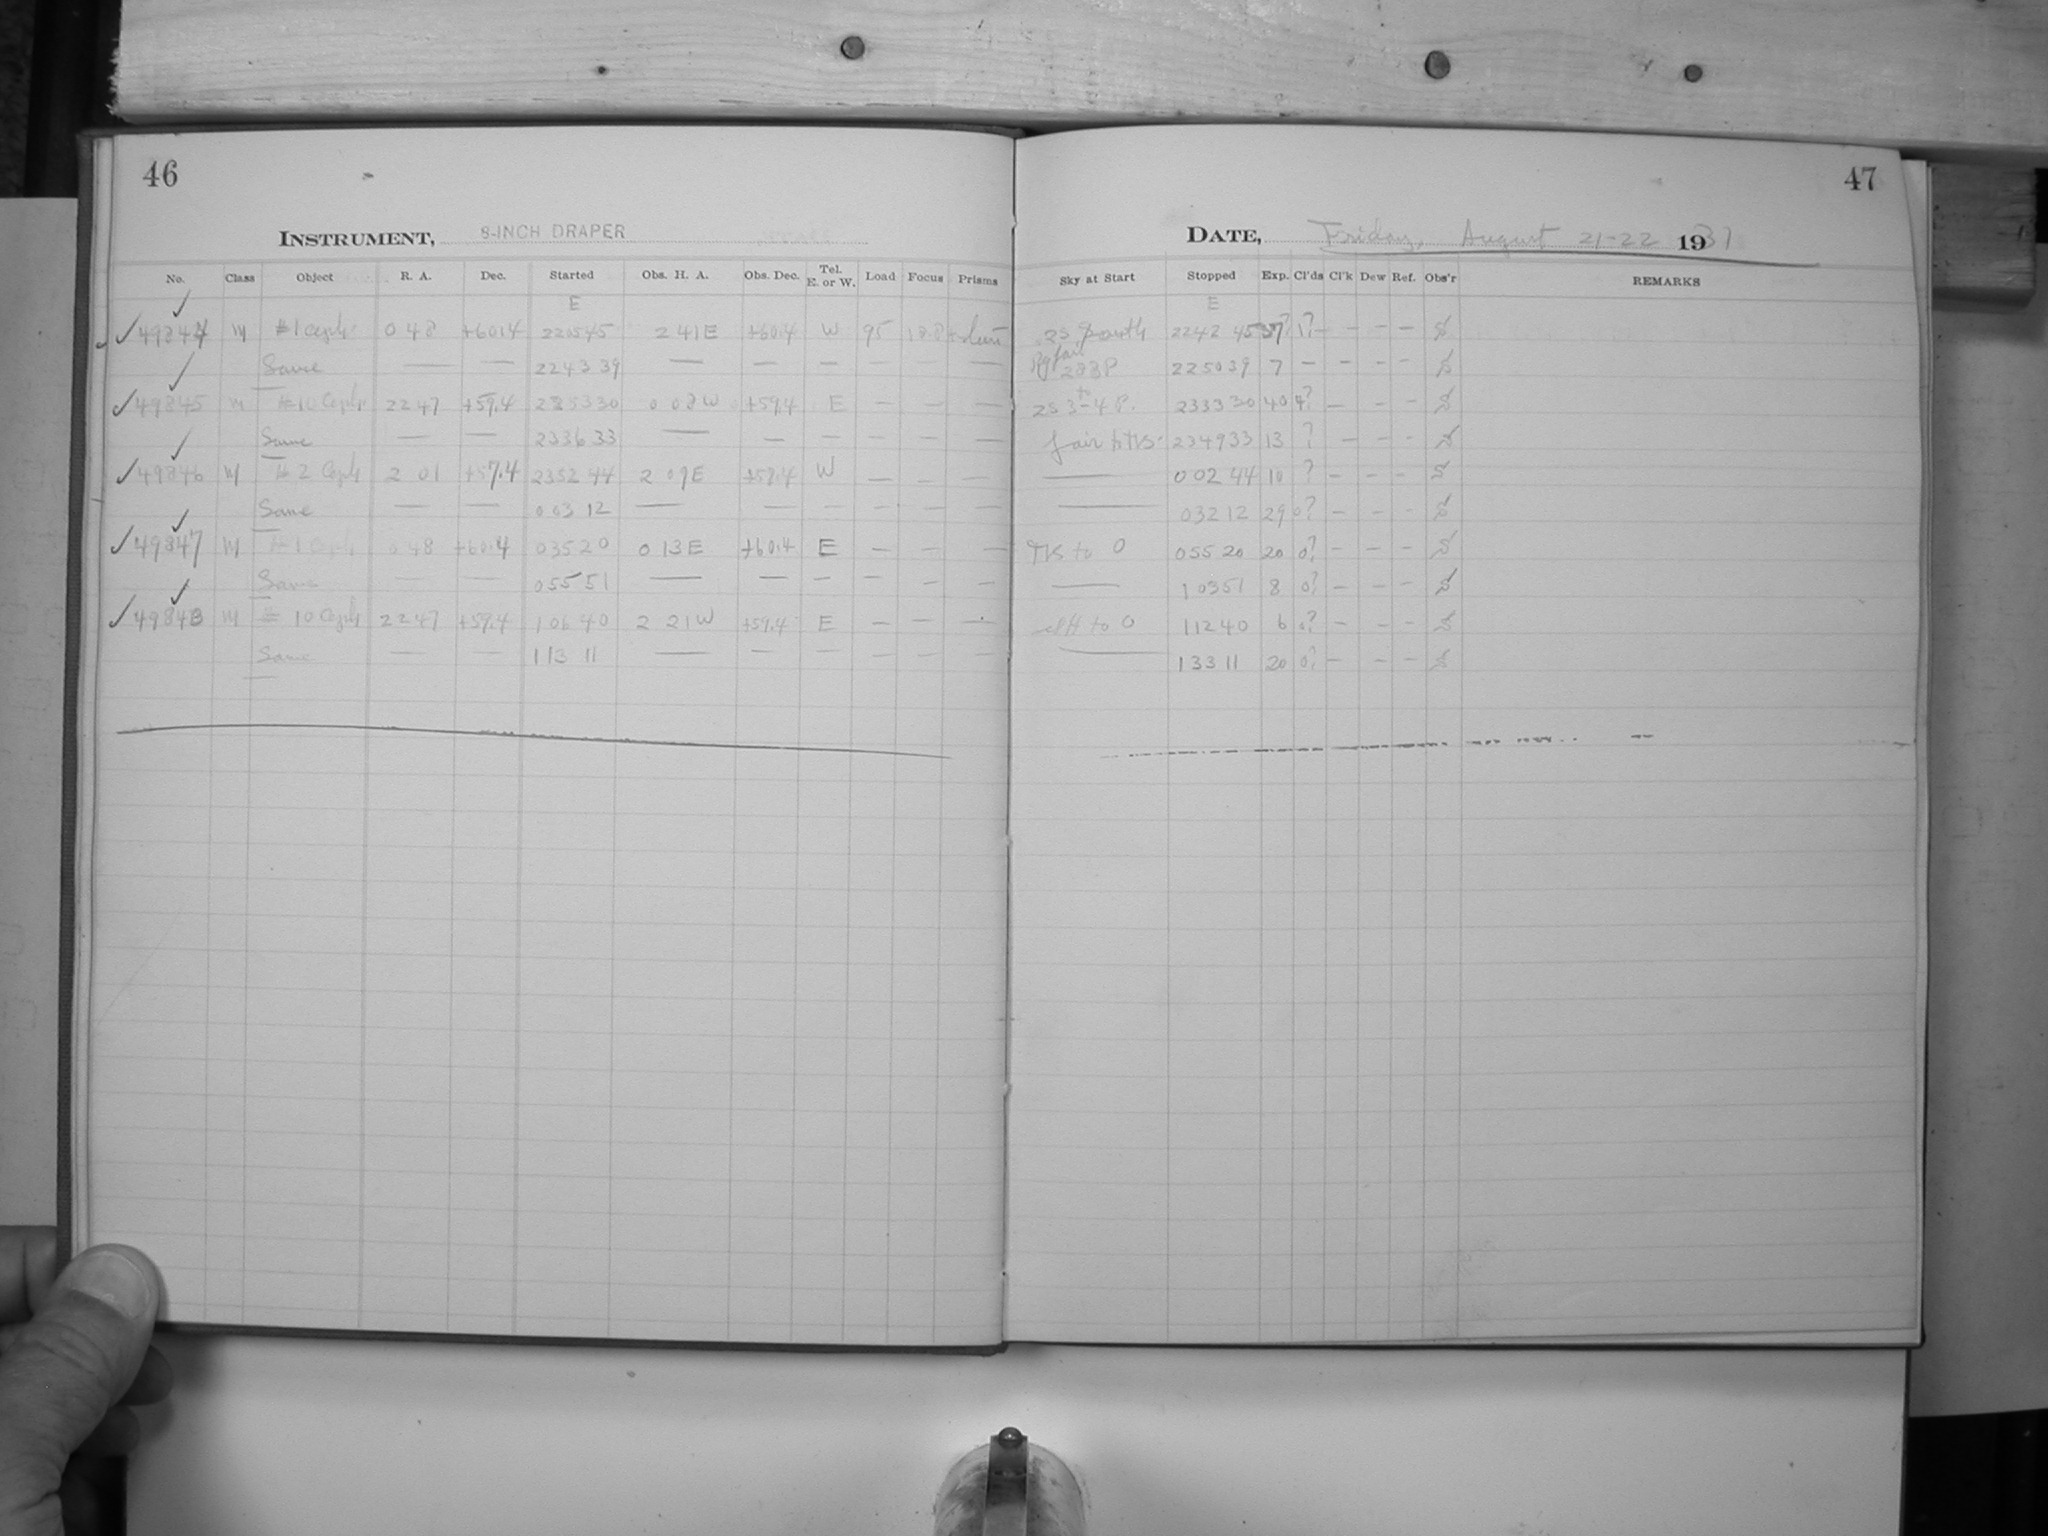 46
INSTRUMENT, 8-INCH DRAPER
No. Class Object R. A. Dec. Started Obs. H. A. Obs. Dec. Tel. E. or W. Load Focus Prisms
E
49844 M #1 Ceph 0 48 +60.4 22 05 45 2 41 E +60.4 W 95
Same — — 22 43 39 — — — — — —
49845 M #10 Ceph 22 47 +59.4 22 53 30 0 08 W +59.4 E — — —
Same — — 23 36 33 — — — — — —
49846 M # 2 Ceph 2 01 +57.4 23 52 44 2 09 E W — — —
Same — — 0 03 12 — — — — — —
49847 M #1 Ceph 0 48 +60.4 0 35 20 0 13 E +60.4 E — — —
Same — — 0 55 51 — — — — — —
49848 M # 10 Ceph 22 47 +59.4 1 06 40 2 21 W +59.4 E — — —
Same — — 1 13 11 — — — — — —
47
DATE, Friday, August 21-22 1931
Sky at Start Stopped Exp. Cl'ds Cl'k Dew Ref. Obs'r REMARKS
E
22 42 45 37 1? — — — S
22 50 39 7 — — — — S
2s 3 to 4 P. 23 33 30 40 4? — — — S
fair 23 49 33 13 ? — — — S
— 0 02 44 10 ? — — — S
— 0 32 12 29 0? — — — S
to 0 0 55 20 20 0? — — — S
— 1 03 51 8 0? — — — S
to 0 1 12 40 6 0? — — — S
— 1 33 11 20 0? — — — S